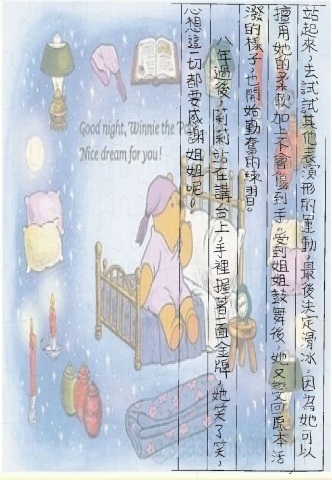 站起來，去試試其他表演形的運動，最後決定滑冰，因為她可以
擅用她的柔軟加上不會傷到手。受到姐姐鼓舞後，她又變回原本活
潑的樣子，也開始勤奮的練習。
八年過後，莉莉站在講台上，手裡握著一面金牌，她笑了笑，
心想這一切都要感謝姐姐呢。
Good night, Winnie the
Nice dream for you!